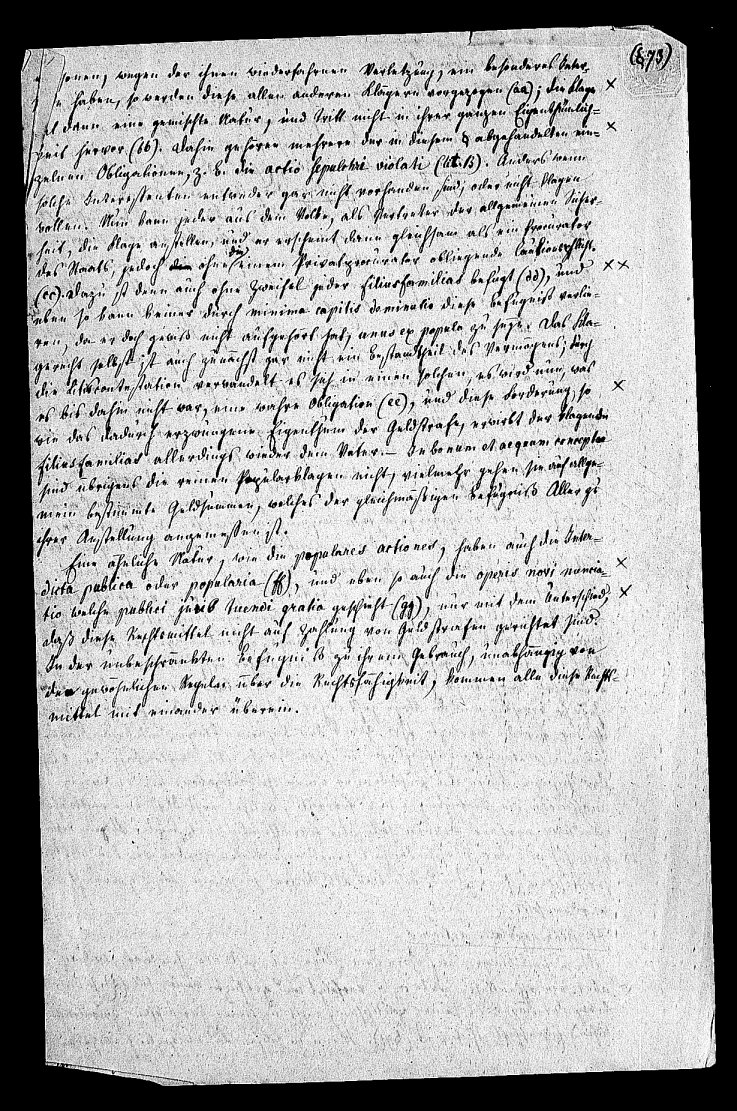 (§73)
sonen, wegen der ihnen wiederfahrnen Verletzung, ein besonderes Inter-
haben, so werden diese allen anderen Klägern vorgezogen (aa); die Klage ×
dann eine gemischte Natur, und tritt nicht in ihrer ganzen Eigenthümlich-
keit hervor (bb). Dahin gehören mehrere der in diesem § abgehandelten ein- ×
zelnen Obligationen, z. B. die actio sepulchri violati (lit. B). Anders wenn
solche Interessenten entweder gar nicht vorhanden sind, oder nicht klagen
wollen. Nun kann jeder aus dem Volke, als Vertreter der allgemeinen Sicher-
heit, die Klage anstellen, und er erscheint dann gleichsam als ein Procurator
des Staats, jedoch ohne die einem Privatprocurator obliegende Cautionspflicht
(cc). Dazu ist denn auch ohne Zweifel jeder filiusfamilias befugt (dd), und × ×
eben so kann keiner durch minima capitis deminutio diese Befugniß verlie-
ren, da er doch gewiß nicht aufgehört hat, unus ex populo zu seyn. Das Kla-
gerecht selbst ist auch zunächst gar nicht ein Bestandtheil des Vermögens; durch
die Litiscontestation verwandelt es sich in einen solchen, es wird nun, was
es bis dahin nicht war, eine wahre Obligation (ee), und diese Forderung, so ×
wie das dadurch erzwungene Eigenthum der Geldstrafe, erwirbt der klagende
filiusfamilias allerdings wieder dem Vater. – In bonum et aequum concepta
sind übrigens die reinen Popularklagen nicht, vielmehr gehen sie auf allge-
mein bestimmte Geldsummen, welches der gleichmäßigen Befugniß Aller zu
ihrer Anstellung angemessen ist.
Eine ähnliche Natur, wie die populares actiones, haben auch die Inter-
dicta publica oder popularia (ff), und eben so auch die operis novi nuncia- ×
tio welche publici juris tuendi gratia geschieht (gg), nur mit dem Unterschied, ×
daß diese Rechtsmittel nicht auf Zahlung von Geldstrafen gerichtet sind.
In der unbeschränkten Befugniß zu ihrem Gebrauch, unabhängig von
den gewöhnlichen Regeln über die Rechtsfähigkeit, kommen alle diese Rechts-
mittel mit einander überein.